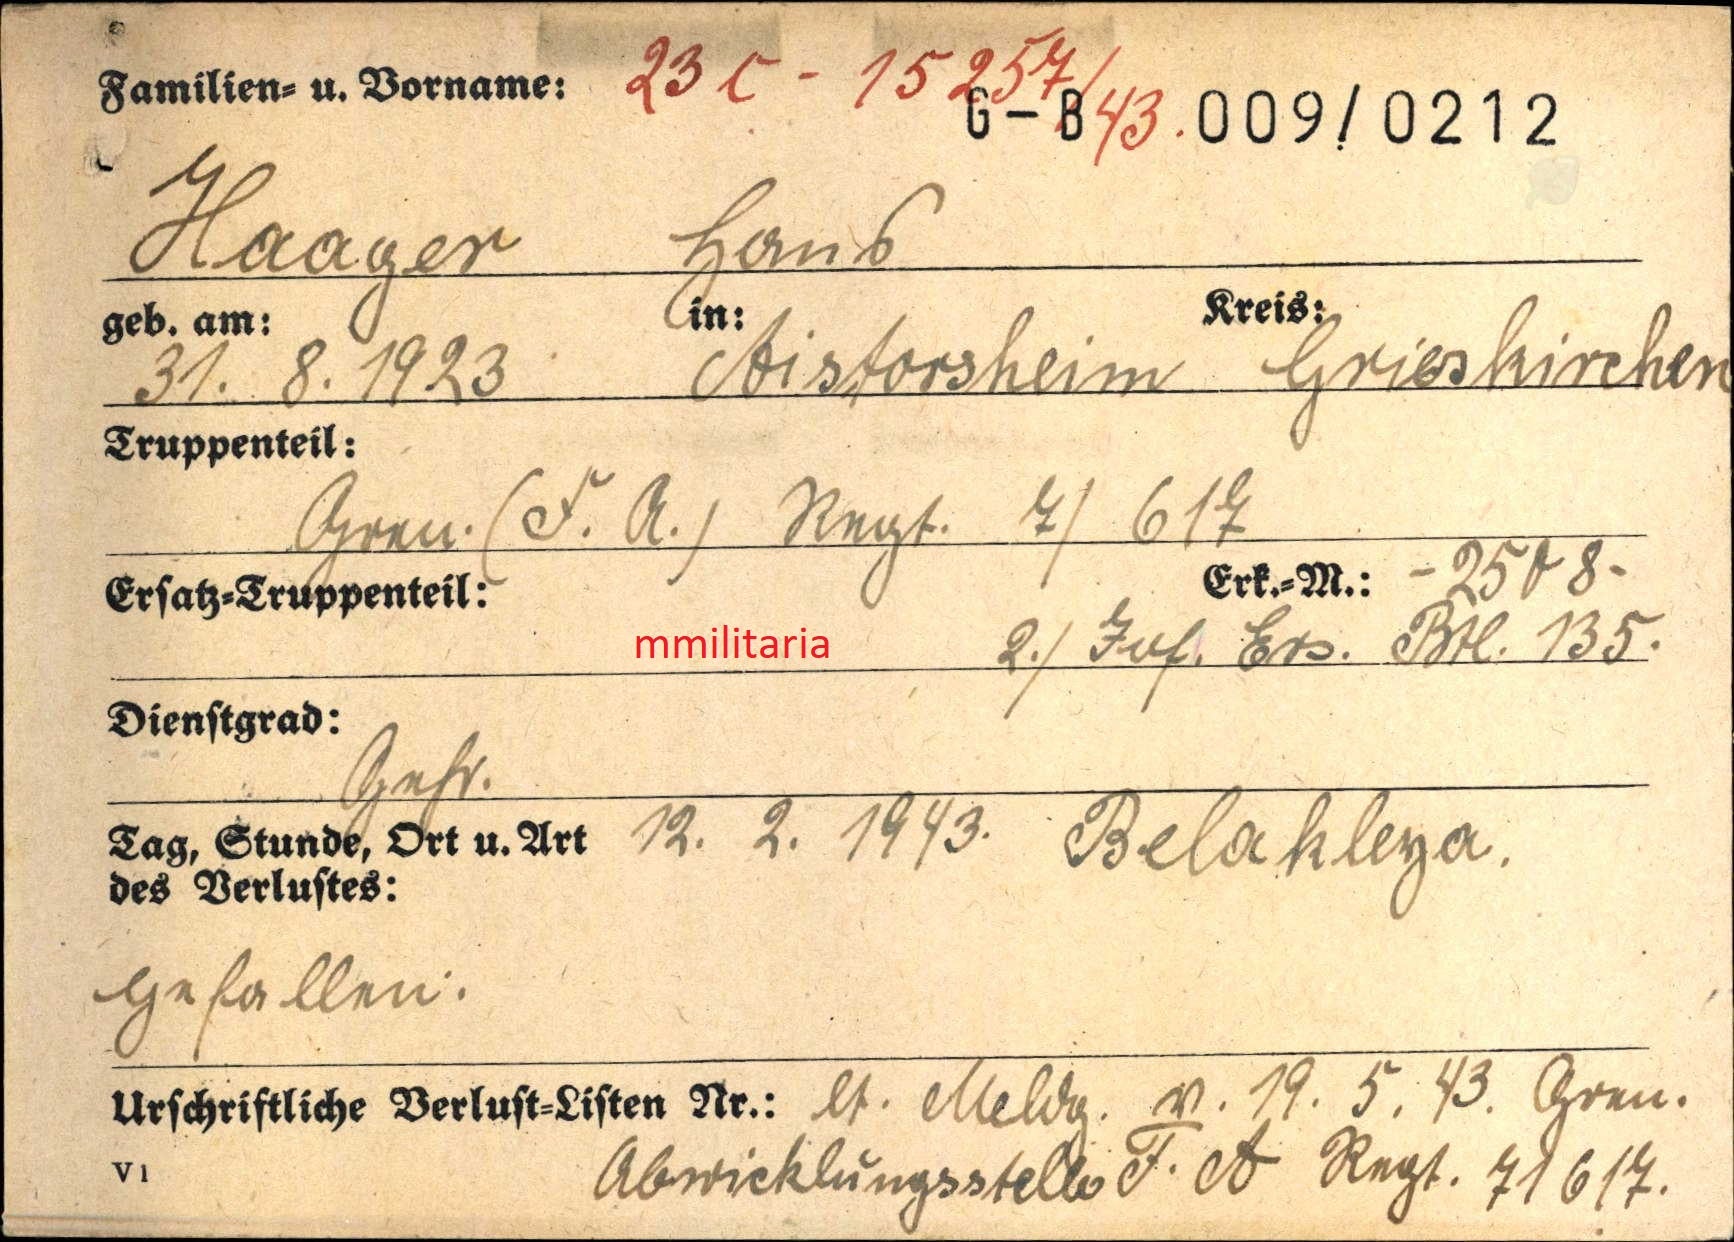 Familien= u. Vorname: 23 C - 15 257/43.
G-B 009/0212
Haager Hans
geb. am: in: Kreis:
31. 8. 1923 Aistorsheim Grieskirchen
Truppenteil:
Gren. (F. A.) Regt. 7/ 617
Ersatz=Truppenteil: Erk.=M.: -2508-
2./ Inf. Ers. Btl. 135.
mmilitaria
Dienstgrad:
Gefr.
Tag, Stunde, Ort u. Art 12. 2. 1943. Belakleya.
des Verlustes:
gefallen.
Urschriftliche Verlust=Listen Nr.: lt. Meldg. v. 19. 5. 43. Gren.
V1 Abwicklungsstelle F. A Regt. 7/617.